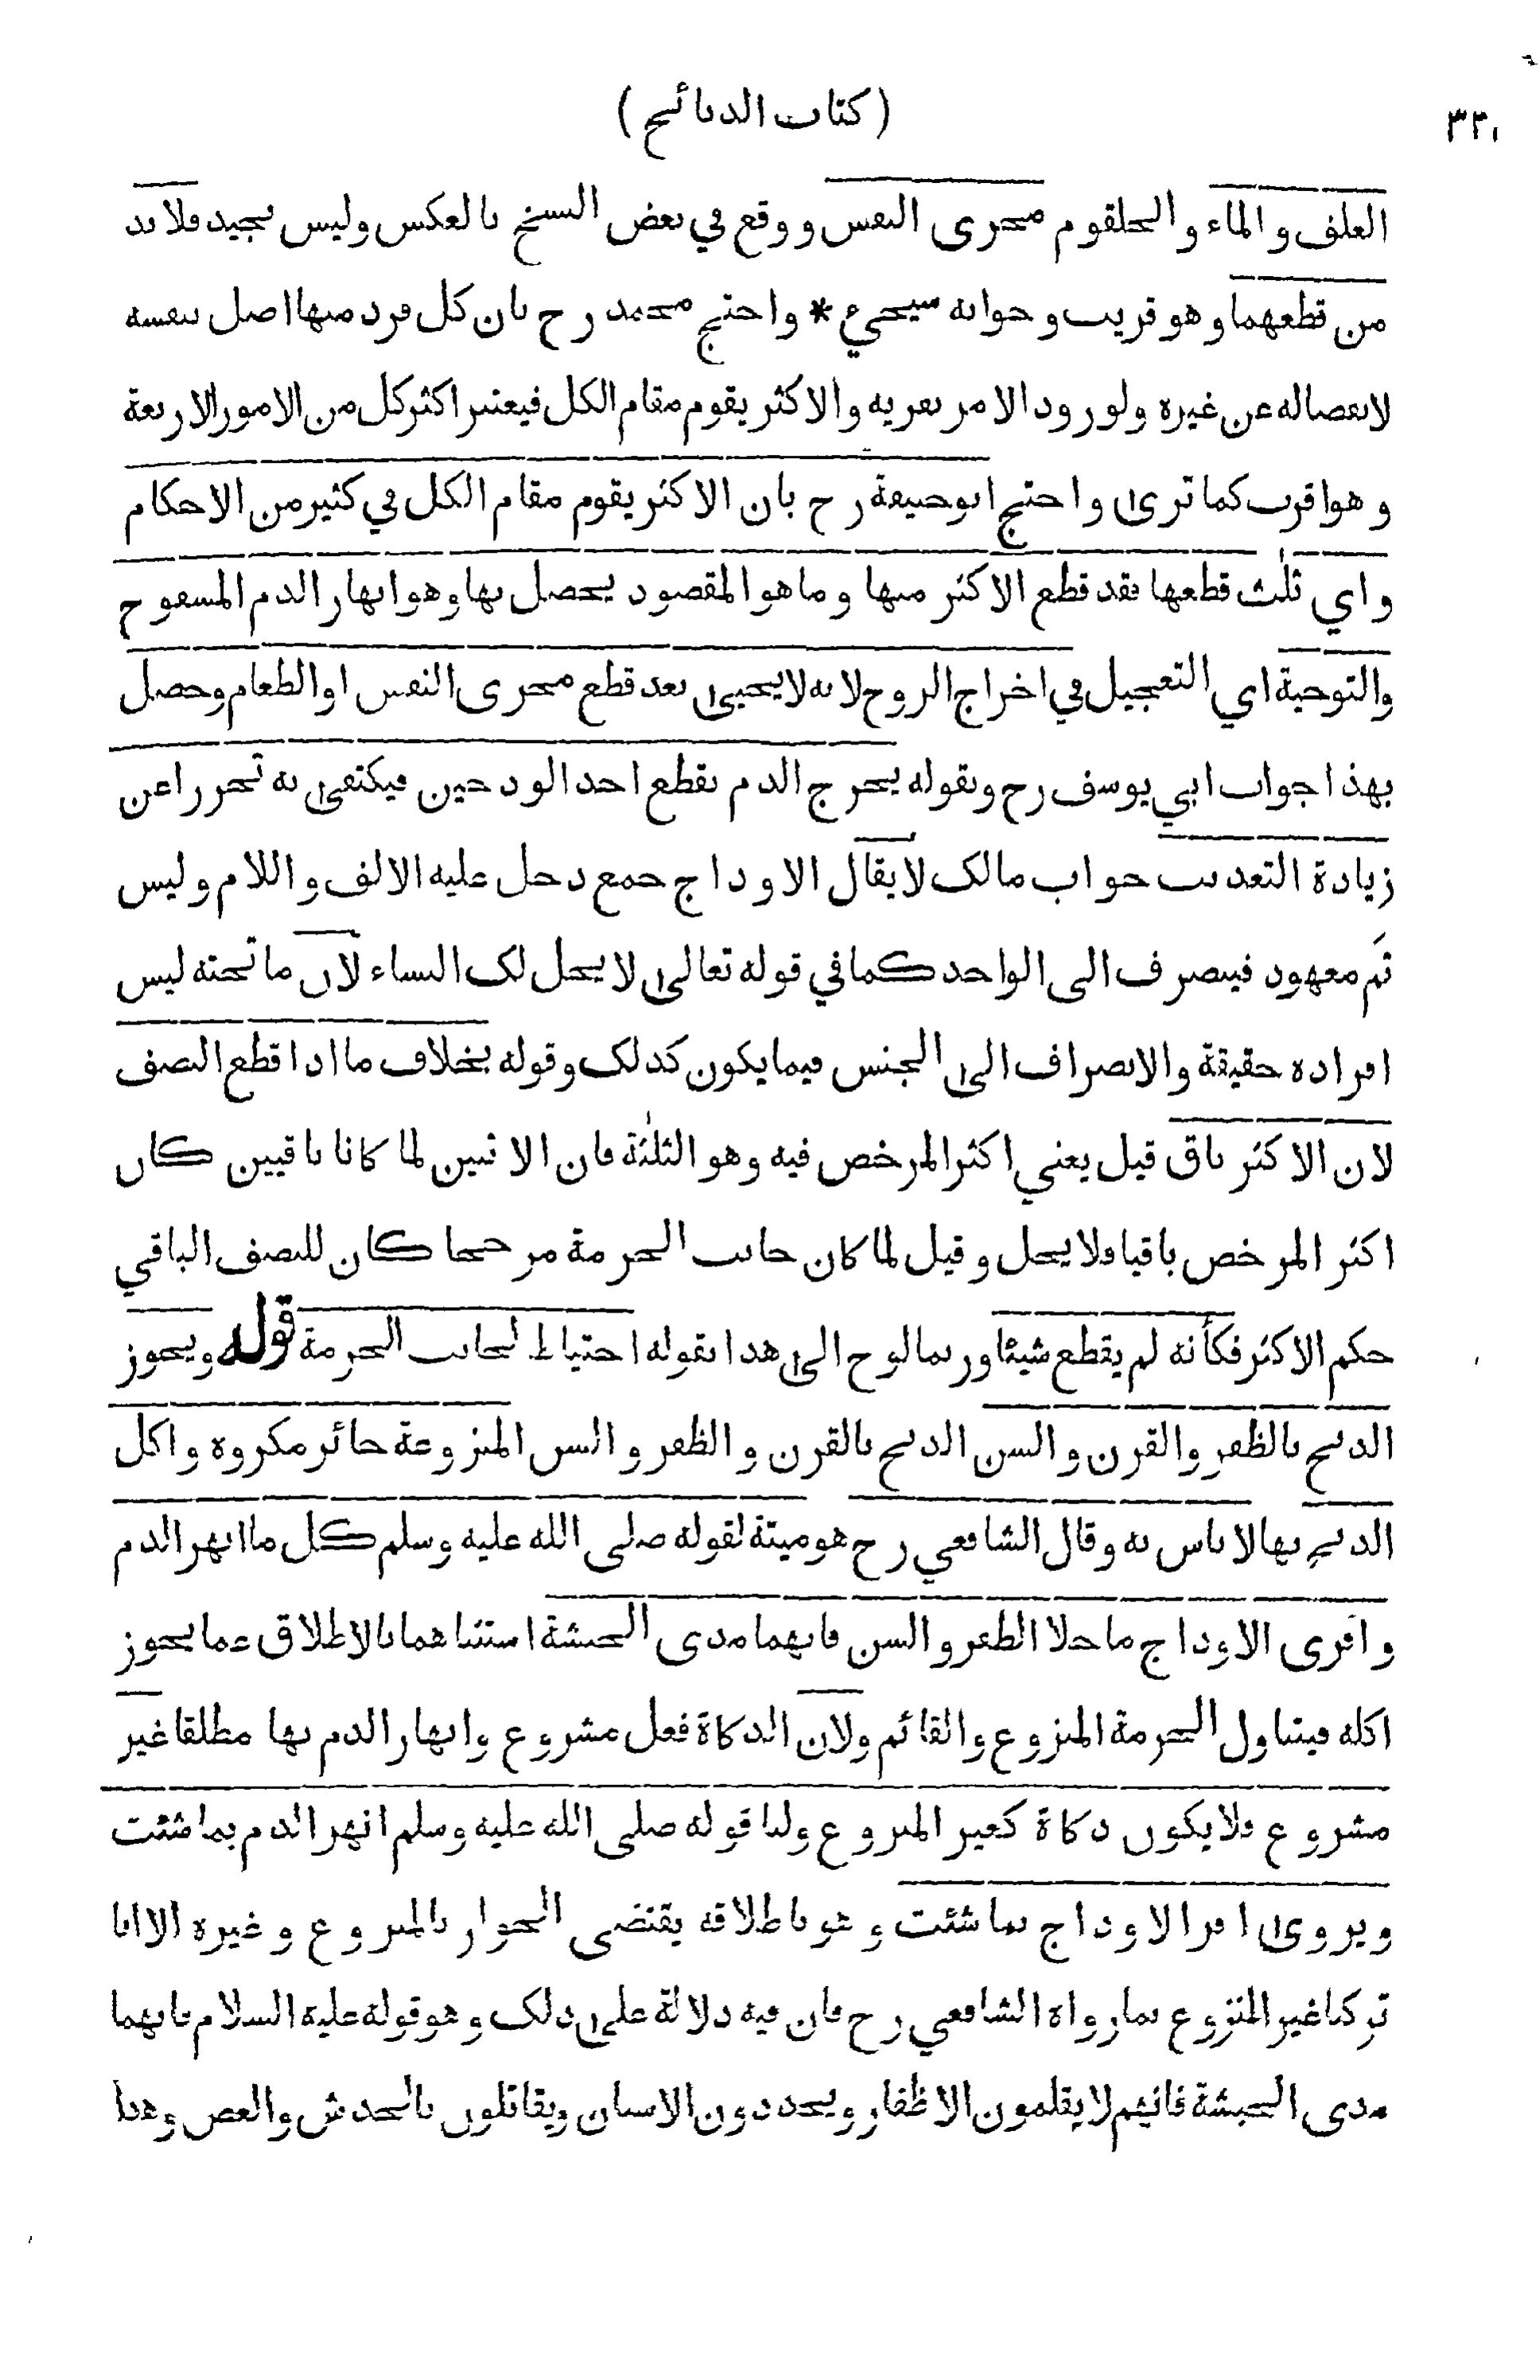 (كتاب الذبائح)
العلف والماء والحلقوم مجرى النفس ووقع في بعض النسخ بالعكس وليس بجيد فلا بد
من قطعهما وهو قريب وجوابه سيجيء * واحتج محمد رح بان كل فرد منها اصل بنفسه
لانفصاله عن غيره ولورود الامر بفريه والاكثر يقوم مقام الكل فيعتبر اكثر كل من الامور الاربعة
وهو اقرب كما ترى واحتج ابوحنيفة رح بان الاكثر يقوم مقام الكل في كثير من الاحكام
واي ثلث قطعها فقد قطع الاكثر منها وما هو المقصود يحصل بها وهو انهار الدم المسفوح
والتوحية اي التعجيل في اخراج الروح لانه لا يحيى بعد قطع مجرى النفس او الطعام وحصل
بهذا جواب ابي يوسف رح وبقوله يخرج الدم بقطع احد الودجين فيكتفى به تحررا عن
زيادة التعذيب جواب مالك لا يقال الاوداج جمع دخل عليه الالف واللام وليس
ثم معهود فينصرف الى الواحد كما في قوله تعالى لا يحل لك النساء لان ما تحته ليس
افراده حقيقة والانصراف الى الجنس فيما يكون كذلك وقوله بخلاف ما اذا قطع النصف
لان الاكثر باق قيل يعني اكثر المرخص فيه وهو الثلثة فان الاثنين لما كانا باقيين كان
اكثر المرخص باقيا فلا يحل وقيل لما كان جانب الحرمة مرجحا كان للنصف الباقي
حكم الاكثر فكأنه لم يقطع شيئا وربما لوح الى هذا بقوله احتياطا لجانب الحرمة قوله ويجوز
الذبح بالظفر والقرن والسن الذبح بالقرن والظفر والسن المنزوعة جائز مكروه واكل
الذبيح بها لا باس به وقال الشافعي رح هو ميتة لقوله صلى الله عليه وسلم كل ما انهر الدم
وافرى الاوداج ما خلا الظفر والسن فانهما مدى الحبشة استثناهما بالاطلاق عما يجوز
اكله فيتناول الحرمة المنزوع والقائم ولان الذكاة فعل مشروع وانهار الدم بها مطلقا غير
مشروع فلا يكون ذكاة كغير المنزوع ولنا قوله صلى الله عليه وسلم انهر الدم بما شئت
ويروى افر الاوداج بما شئت وهو باطلاقه يقتضي الجواز بالمنزوع وغيره الا انا
تركنا غير المنزوع بما رواه الشافعي رح فان فيه دلالة على ذلك وهو قوله عليه السلام فانهما
مدى الحبشة فانهم لا يقلمون الاظفار ويحددون الاسنان ويقاتلون بالخدش والعض وهذا